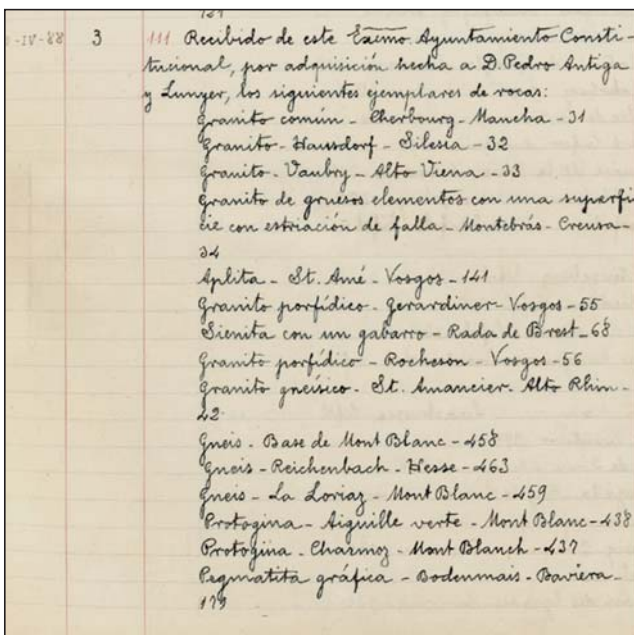 -IV-88 3 111 Recibido de este Exemo. Ayuntamiento Consti-
tucional, por adquisición hecha a D. Pedro Antiga
y Sunyer, los siguientes ejemplares de rocas:
Granito común - Cherbourg - Mancha - 31
Granito - Hausdorf - Silesia - 32
Granito - Vaubry - Alto Viena - 33
Granito de gruesos elementos con una superfi
cie con estriación de falla - Montebrás - Creusa -
34
Aplita - St. Amé - Vosgos - 141
Granito porfídico - Gerardmer - Vosgos - 55
Sienita con un gabarro - Rada de Brest - 68
Granito porfídico - Rocheson - Vosgos - 56
Granito gneísico - St. Amancier - Alto Rhin -
42
Gneis - Base de Mont Blanc - 458
Gneis - Reichenbach - Hesse - 463
Gneis - La Loriaz - Mont Blanc - 459
Protogina - Aiguille verte - Mont Blanc - 438
Protogina - Charmoz - Mont Blanch - 437
Pegmatita gráfica - Bodenmais - Baviera -
179